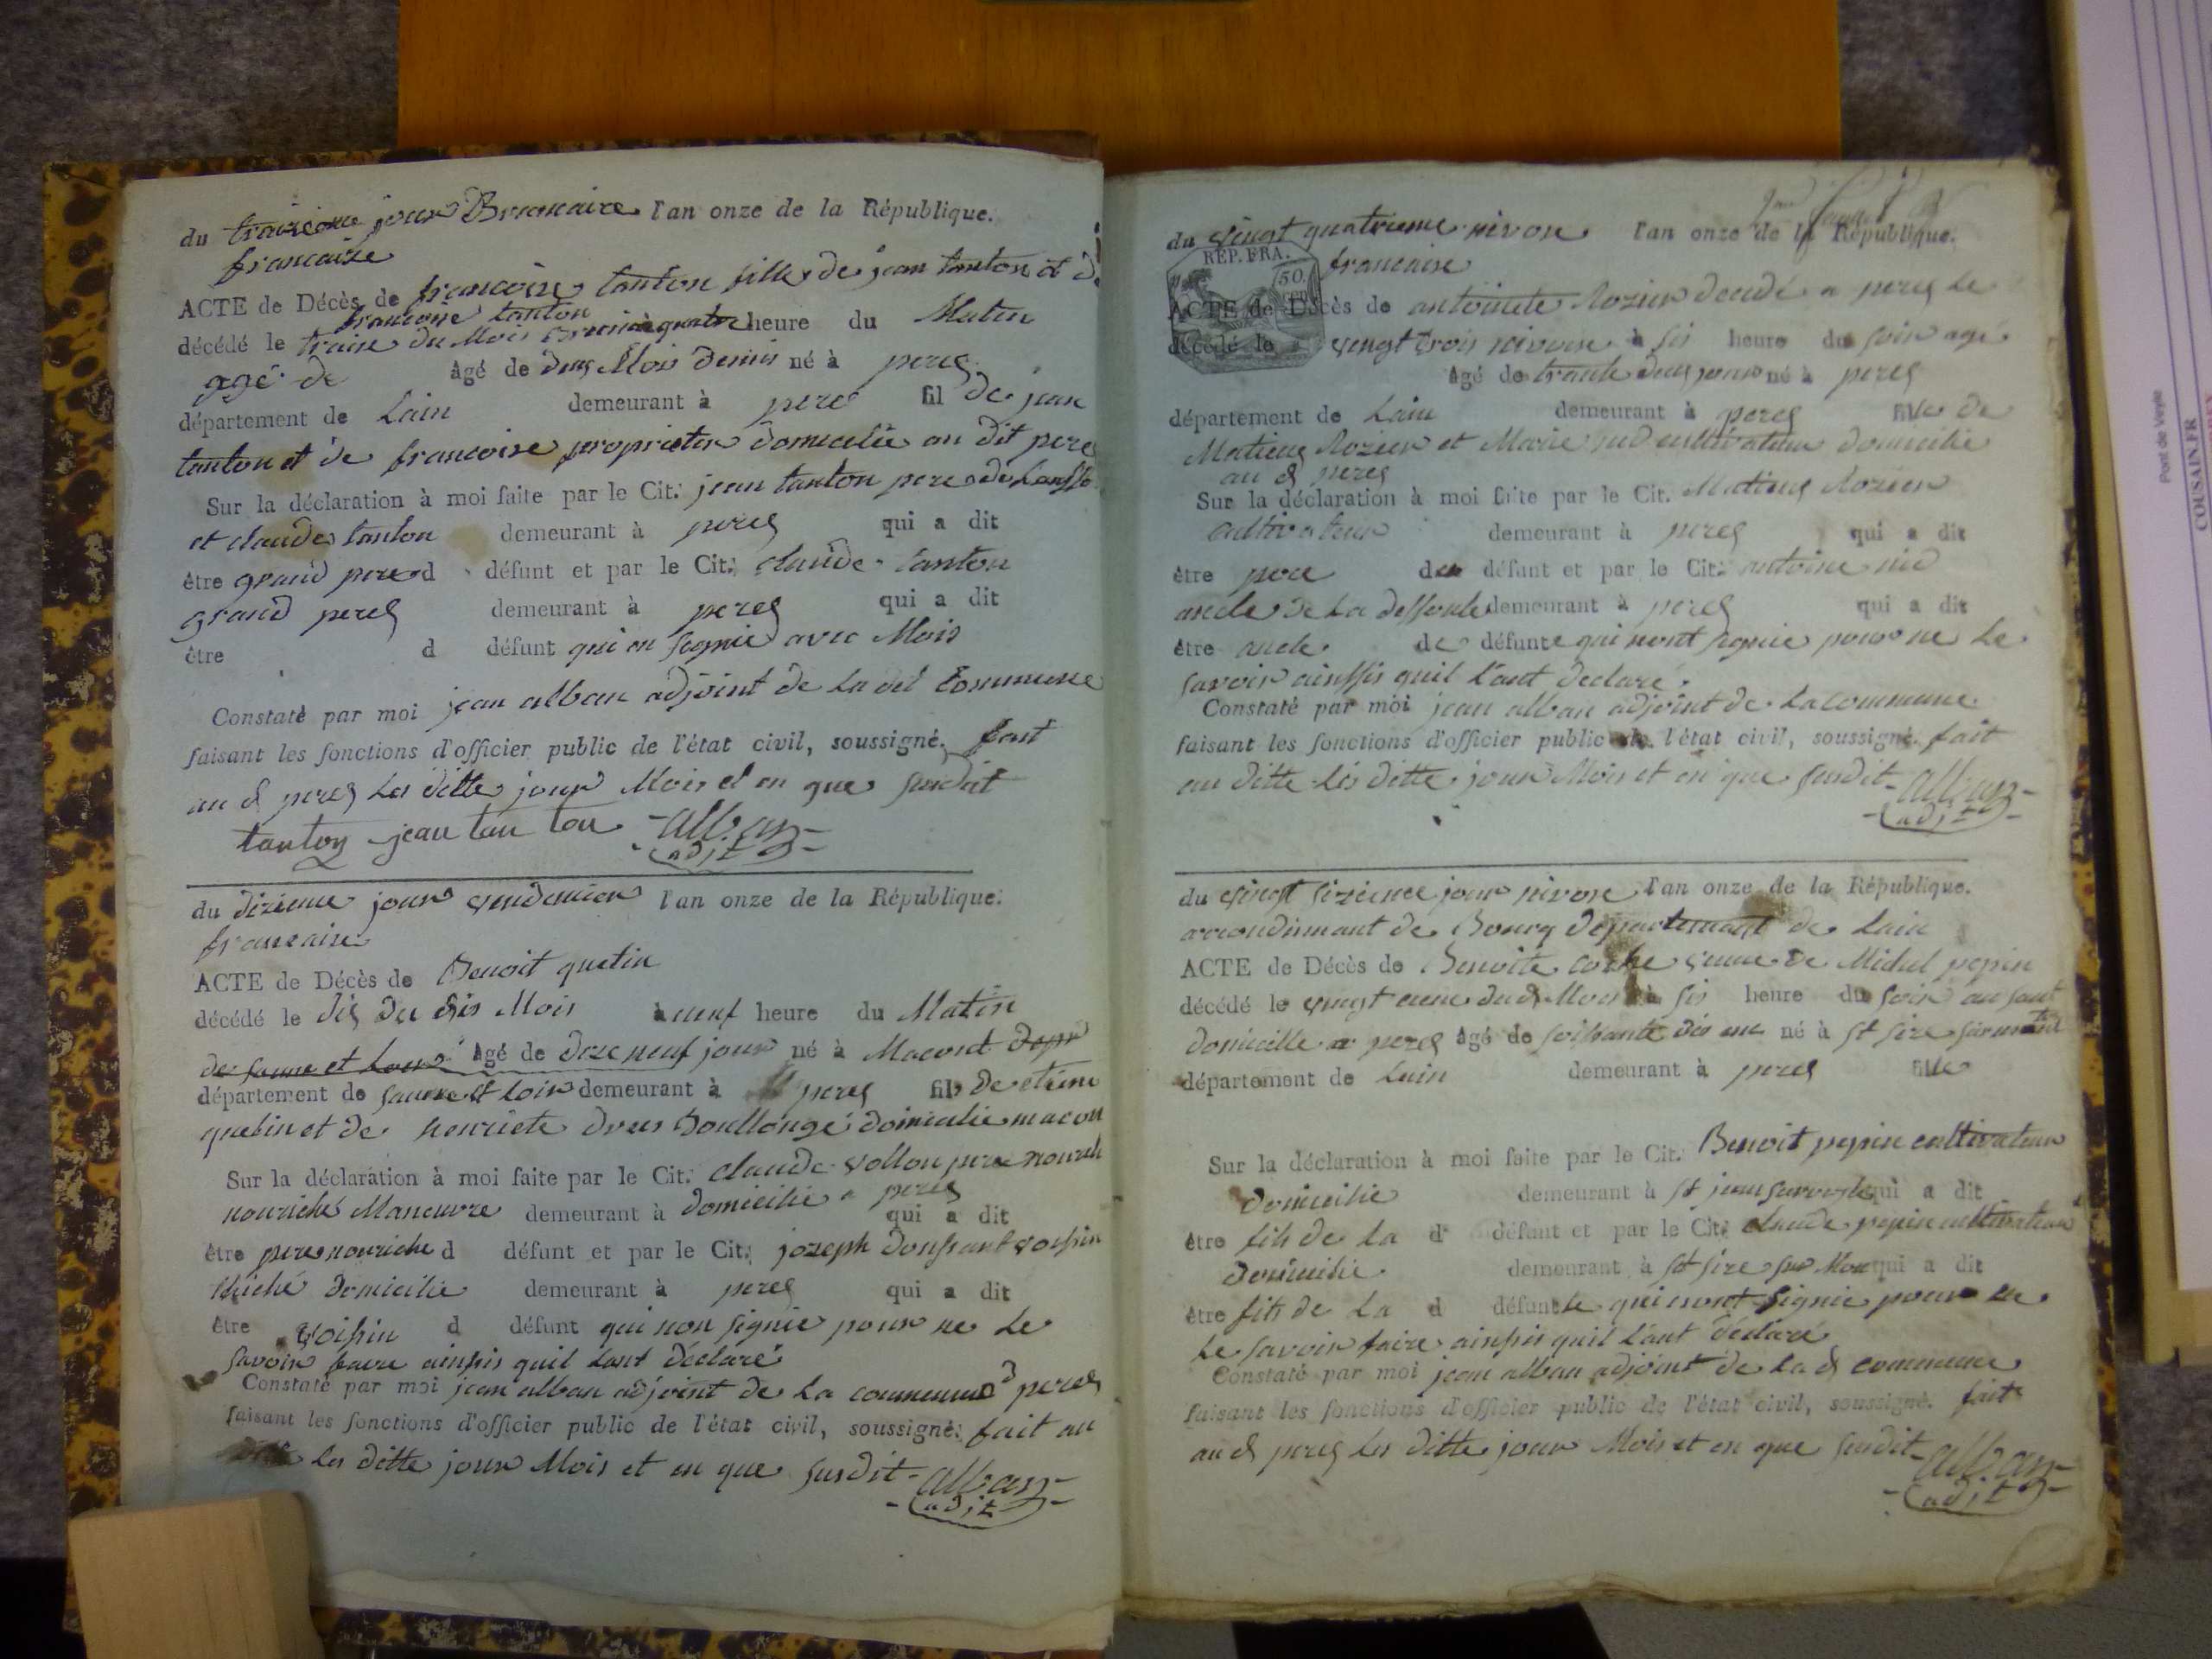 du traizieme jour Brumaire l'an onze de la République.
francaise
ACTE de Décès de francoise tanton fille de jean tanton et d
francoise tanton
décédé le traise du Mois à quatre heure du Matin
agé de âgé de deus Mois demis né à peres
département de Lain demeurant à peres fil de jean
tanton et de francoise proprieter domicilie au dit peres
Sur la déclaration à moi faite par le Cit. jean tanton pere de
et claude tanton demeurant à peres qui a dit
être grand pere d défunt et par le Cit. claude tanton
grand peres demeurant à peres qui a dit
être d défunt qui on signie avec Mois
Constaté par moi jean alban adjoint de la dit Commune
faisant les fonctions d'officier public de l'état civil, soussigné. fait
au d peres les ditte jour Mois et en que susdit
tanton jean tan ton alban
adjt
du dizieme jour vendemier l'an onze de la République.
francaise
ACTE de Décès de Benoit quetin
décédé le dis du dis Mois à neuf heure du Matin
de saune et Loire âgé de dize neuf jour né à Macont depr
département de saune et Loir demeurant à peres fils de etiene
quetin et de henriete domicilie macon
Sur la déclaration à moi faite par le Cit. claude vollon pere nourch
nouriché Maneuvre demeurant à domicilie a peres qui a dit
être pere nouriche d défunt et par le Cit. jozeph voisin
domicilie demeurant à peres qui a dit
être voisin d défunt qui non signie pour ne le
savoir faire ainsis quil lont déclaré
Constaté par moi jean alban adjoint de la commune d peres
faisant les fonctions d'officier public de l'état civil, soussigné. fait au
les ditte jour Mois et en que susdit alban
adjt
du vingt quatrieme nivose l'an onze de la République.
REP. FRA.
50
cen
francaise
ACTE de Décès de antoinete Rozier decedé a peres le
décédé le vingt trois nivose à sis heure du soir agé
âgé de trante deus jour né à peres
département de Lain demeurant à peres fille de
Matieus Rozier et Marie nid cultivateur domicilie
au d peres
Sur la déclaration à moi faite par le Cit. Matieus Rozier
cultivateur demeurant à peres qui a dit
être pere de défunt et par le Cit. antoine nid
oncle de la deffunte demeurant à peres qui a dit
être oncle de défunte qui nont signie pour ne le
savoir ainssis quil lont declaré
Constaté par moi jean alban adjoint de la commune
faisant les fonctions d'officier public de l'état civil, soussigné. fait
au ditte les ditte jour Mois et en que susdit alban
adjt
du vingt sizieme jour nivose l'an onze de la République.
arrondismant de Bourg departement de Lain
ACTE de Décès de Benoite veuve de Michel pepin
décédé le vingt du d Mois à sis heure du soir au
domicille a peres âgé de soissante dis né à st sire
département de Lain demeurant à peres fille
Sur la déclaration à moi faite par le Cit. Benoit pepin cultivateur
domicilie demeurant à st jean qui a dit
être fils de la d défunt et par le Cit. claude pepin cultivateur
domicilie demeurant à st sire sur Mon qui a dit
être fils de la d défunte qui nont signie pour ne
le savoir faire ainsis quil lont déclaré
Constaté par moi jean alban adjoint de la d commune
faisant les fonctions d'officier public de l'état civil, soussigné. fait
au d peres les ditte jour Mois et en que susdit alban
adjt
Pont de Veyle
COUSAIN.FR